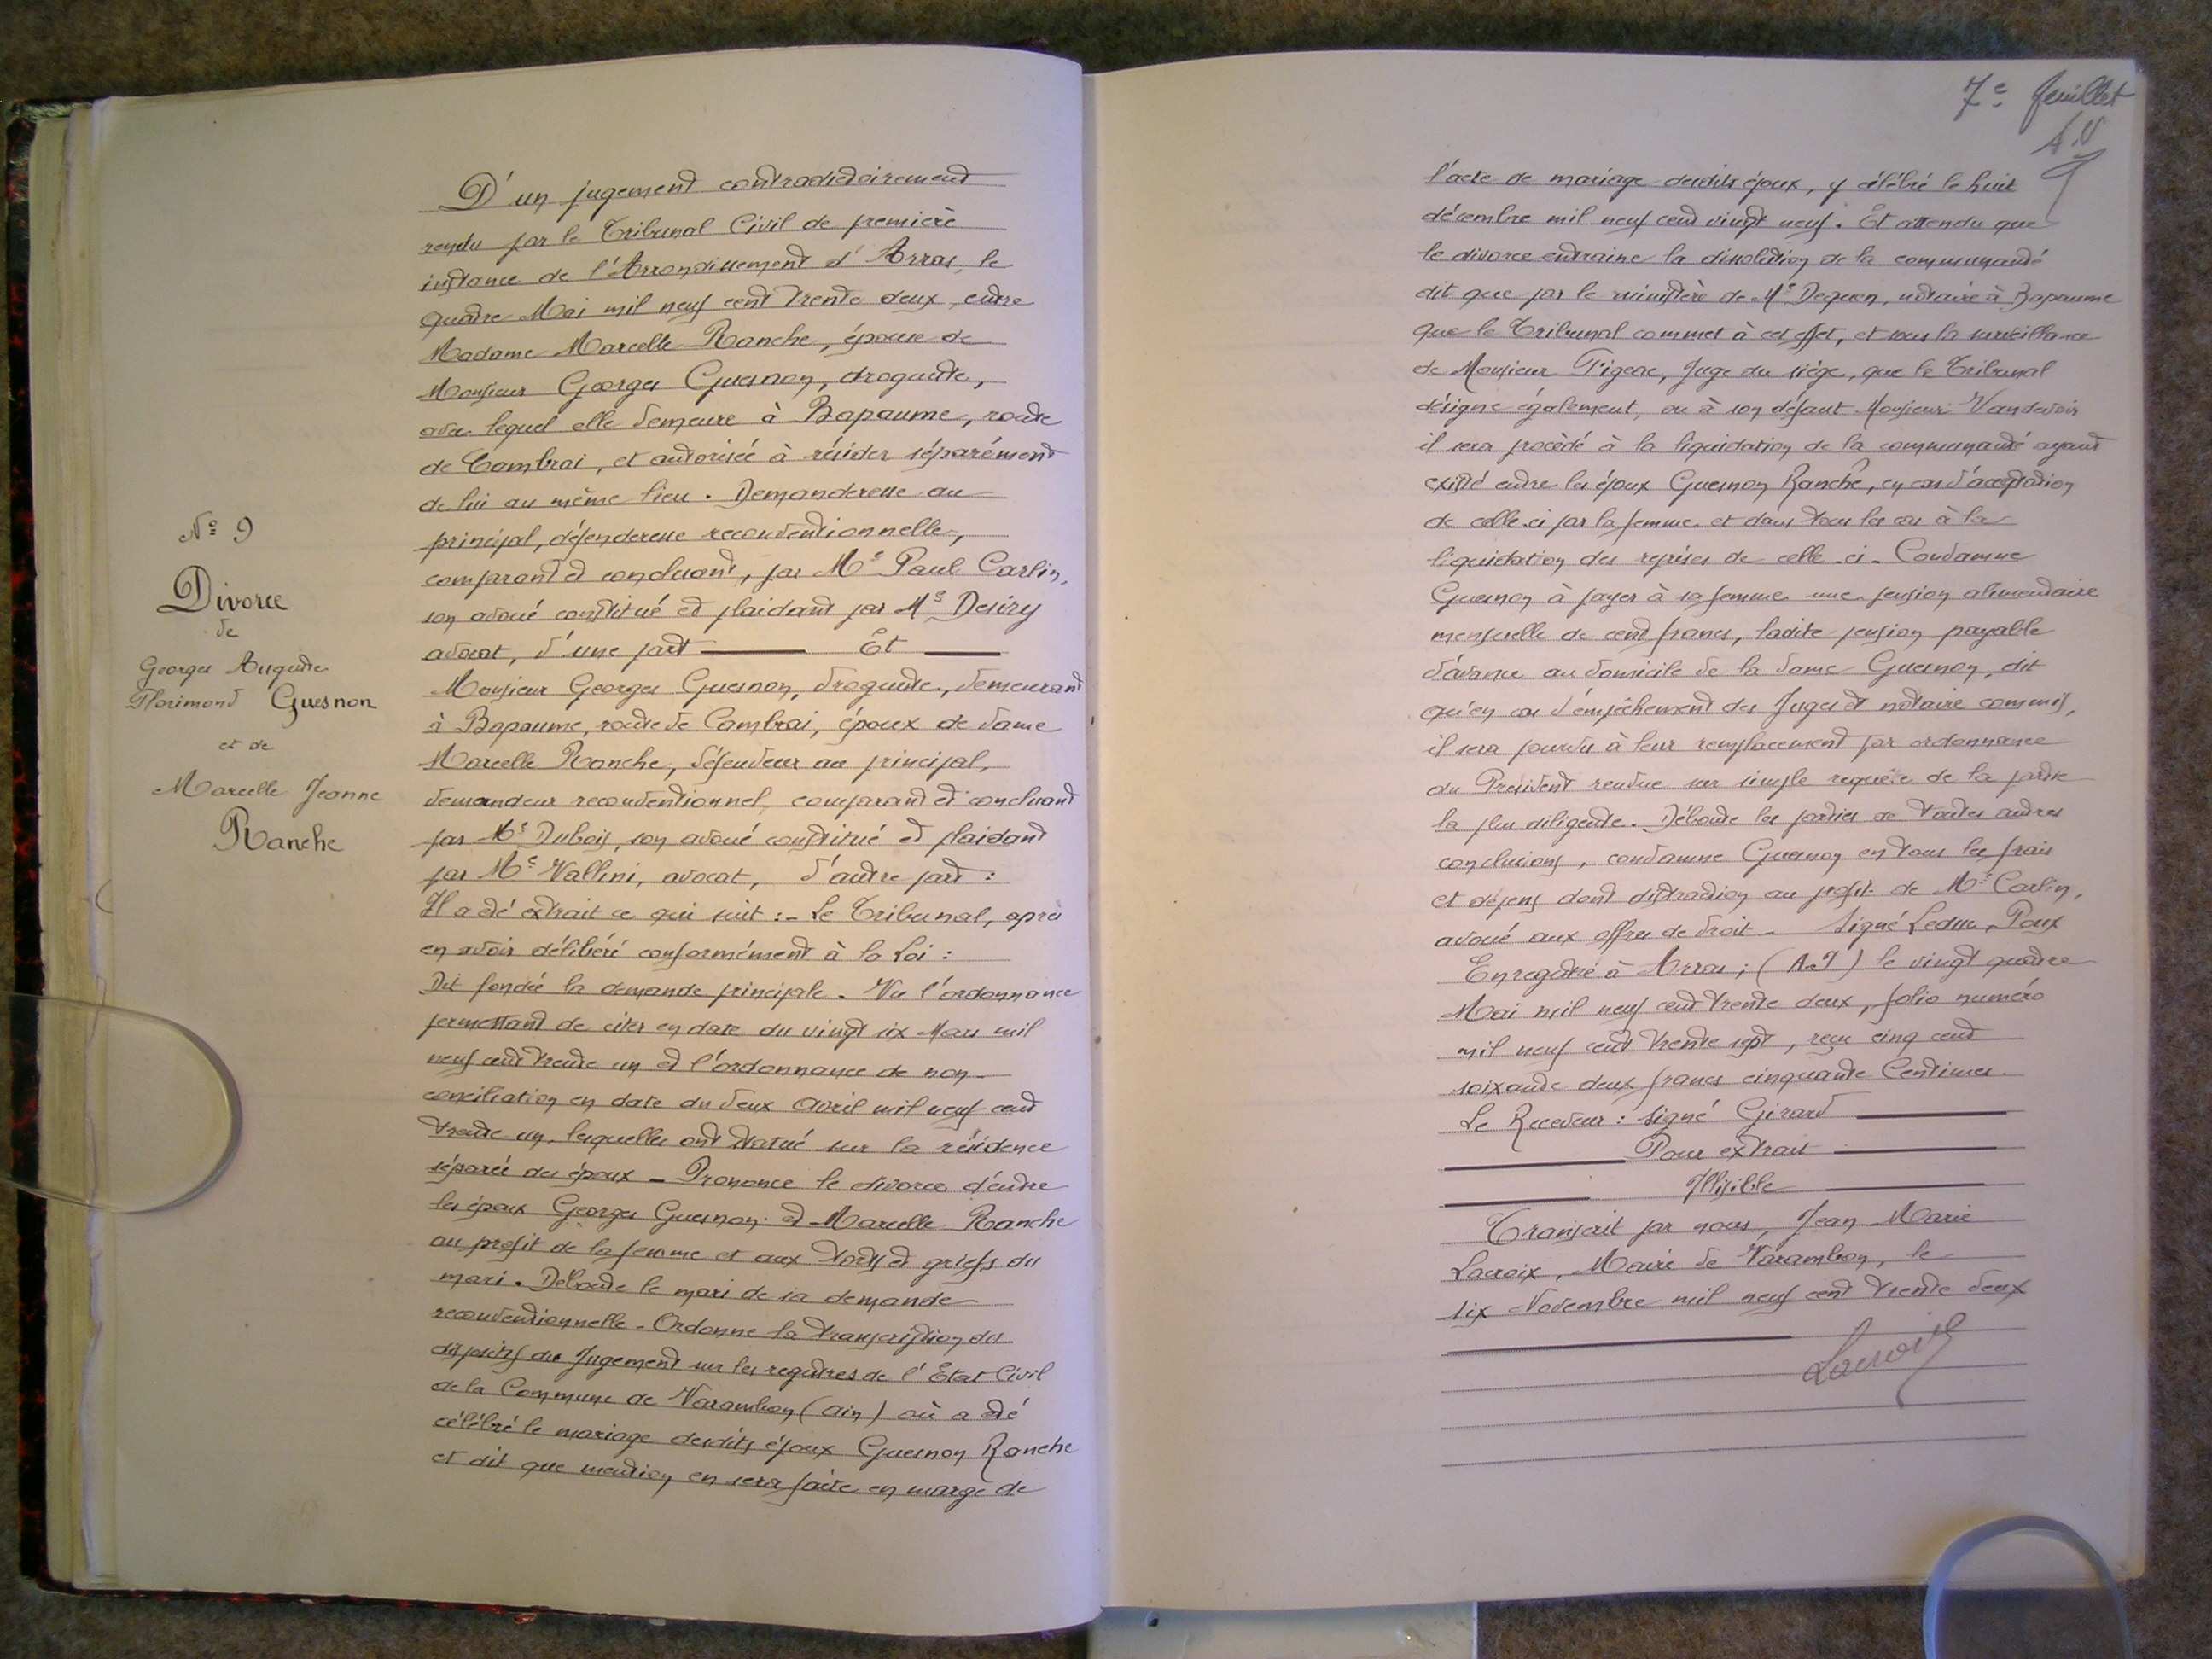 Nº 9
Divorce
de
Georges Auguste
Florimond Guesnon
et de
Marcelle Jeanne
Ranche
D'un jugement contradictoirement
rendu par le Tribunal Civil de première
instance de l'Arrondissement d'Arras, le
quatre Mai mil neuf cent trente deux, entre
Madame Marcelle Ranche, épouse de
Monsieur Georges Guesnon, droguiste,
avec lequel elle demeure à Bapaume, route
de Cambrai, et autorisée à résider séparément
de lui au même lieu. Demanderesse au
principal, défenderesse reconventionnelle,
comparant et concluant, par Me Paul Carlin,
son avoué constitué et plaidant par Me Desiry
avocat, d'une part Et
Monsieur Georges Guesnon, droguiste, demeurant
à Bapaume, route de Cambrai, époux de dame
Marcelle Ranche, défendeur au principal,
demandeur reconventionnel, comparant et concluant
par Me Dubois, son avoué constitué et plaidant
par Me Vallini, avocat, d'autre part :
Il a été extrait ce qui suit :- Le Tribunal, après
en avoir délibéré conformément à la Loi :
Dit fondée la demande principale. Vu l'ordonnance
permettant de citer en date du vingt six Mars mil
neuf cent trente un et l'ordonnance de non-
conciliation en date du deux Avril mil neuf cent
trente un, lesquelles ont statué sur la résidence
séparée des époux - Prononce le divorce d'entre
les époux Georges Guesnon et Marcelle Ranche
au profit de la femme et aux torts et griefs du
mari. Déboute le mari de sa demande
reconventionnelle - Ordonne la transcription du
dispositif du Jugement sur les registres de l'Etat Civil
de la Commune de Varambon (Ain) où a été
célébré le mariage desdits époux Guesnon Ranche
et dit que mention en sera faite en marge de
7e feuillet
l'acte de mariage desdits époux, y célébré le huit
décembre mil neuf cent vingt neuf. Et attendu que
le divorce entraine la dissolution de la communauté
dit que par le ministère de Me Dequen, notaire à Bapaume
que le Tribunal commet à cet effet, et sous la surveillance
de Monsieur Figeac, Juge du siège, que le Tribunal
désigne également, ou à son défaut Monsieur Vandevoir
il sera procèdé à la liquidation de la communauté ayant
existé entre les époux Guesnon Ranche, en cas d'acceptation
de celle-ci par la femme et dans tous les cas à la
liquidation des reprises de celle-ci - Condamne
Guesnon à payer à sa femme une pension alimentaire
mensuelle de cent francs, ladite pension payable
d'avance au domicile de la dame Guesnon, dit
qu'en cas d'empêchement des Juges et notaire commis,
il sera pourvu à leur remplacement par ordonnance
du Président rendue sur simple requête de la partie
la plus diligente. Déboute les parties de toutes autres
conclusions, condamne Guesnon en tous les frais
et dépens dont distraction au profit de Me Carlin,
avoué aux offres de droit - Signé Leduc, Poux
Enregistré à Arras ; (A.J) le vingt quatre
Mai mil neuf cent trente deux, folio numéro
mil neuf cent trente sept, reçu cinq cent
soixante deux francs cinquante Centimes.
Le Receveur : Signé Girard
Pour extrait
Illisible
Transcrit par nous, Jean Marie
Lacroix, Maire de Varambon, le
six Novembre mil neuf cent trente deux
Lacroix